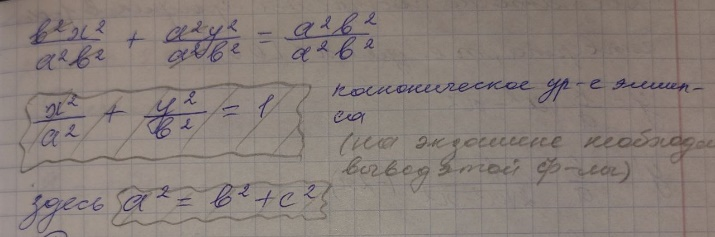 b²x²/a²b² + a²y²/a²b² = a²b²/a²b²
x²/a² + y²/b² = 1 каноническое ур-е эллип-
са
(на экзамене необходи
вывод этой ф-лы)
здесь a² = b² + c²